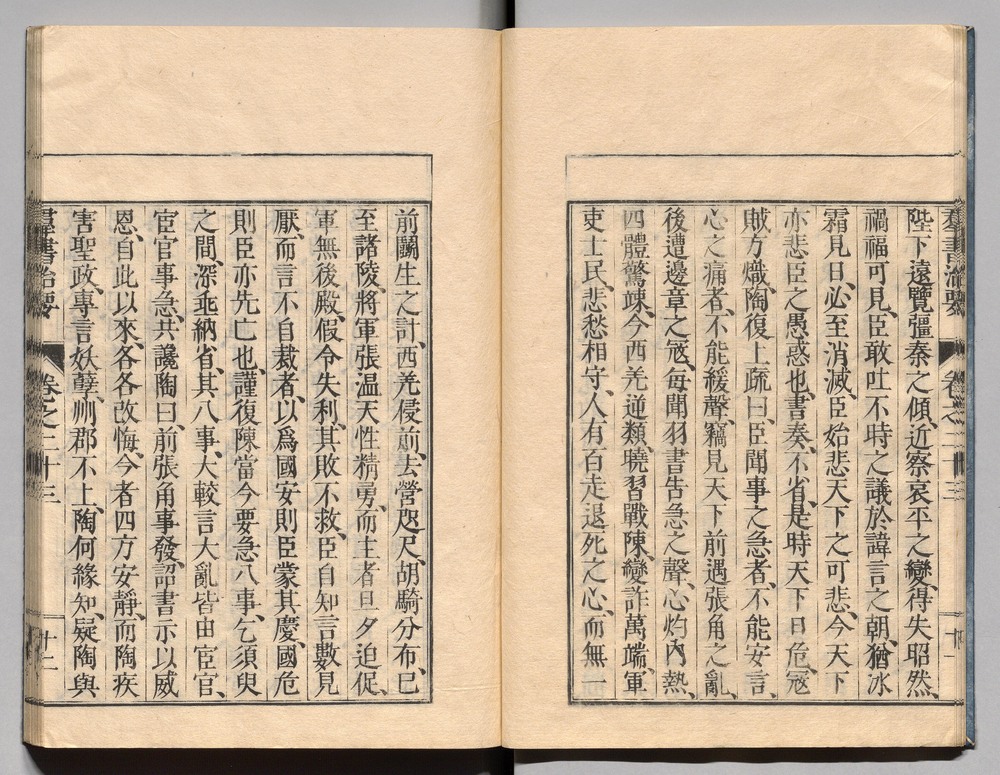 羣書治要 卷之二十三 十一
陛下遠覽彊秦之傾、近察哀平之變、得失昭然、
禍福可見、臣敢吐不時之議於諱言之朝、猶冰
霜見日、必至消滅、臣始悲天下之可悲、今天下
亦悲臣之愚惑也、書奏、不省、是時天下日危、寇
賊方熾、陶復上疏曰、臣聞事之急者、不能安言、
心之痛者、不能緩聲、竊見天下前遇張角之亂、
後遭邊章之寇、每聞羽書告急之聲、心灼內熱、
四體驚竦、今西羌逆類、曉習戰陳、變詐萬端、軍
吏士民、悲愁相守、人有百走退死之心、而無一
前鬭生之計、西羌侵前、去營咫尺、胡騎分布、已
至諸陵、將軍張温天性精勇、而主者旦夕迫促、
軍無後殿、假令失利、其敗不救、臣自知言數見
厭、而言不自裁者、以爲國安則臣蒙其慶、國危
則臣亦先亡也、謹復陳當今要急八事、乞須臾
之間、深垂納省、其八事、大較言大亂皆由宦官、
宦官事急、共讒陶曰、前張角事發、詔書示以威
恩、自此以來、各各改悔、今者四方安靜、而陶疾
害聖政、專言妖孽、州郡不上、陶何緣知、疑陶與
羣書治要 卷之二十三 十二